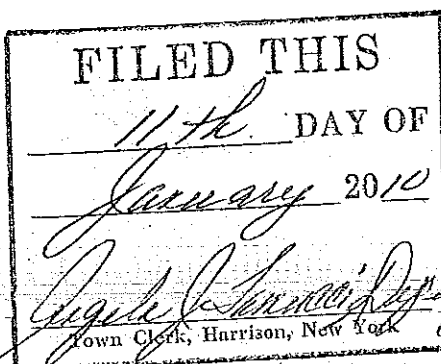 FILED THIS
11th DAY OF
January 2010
Angela J.
Town Clerk, Harrison, New York